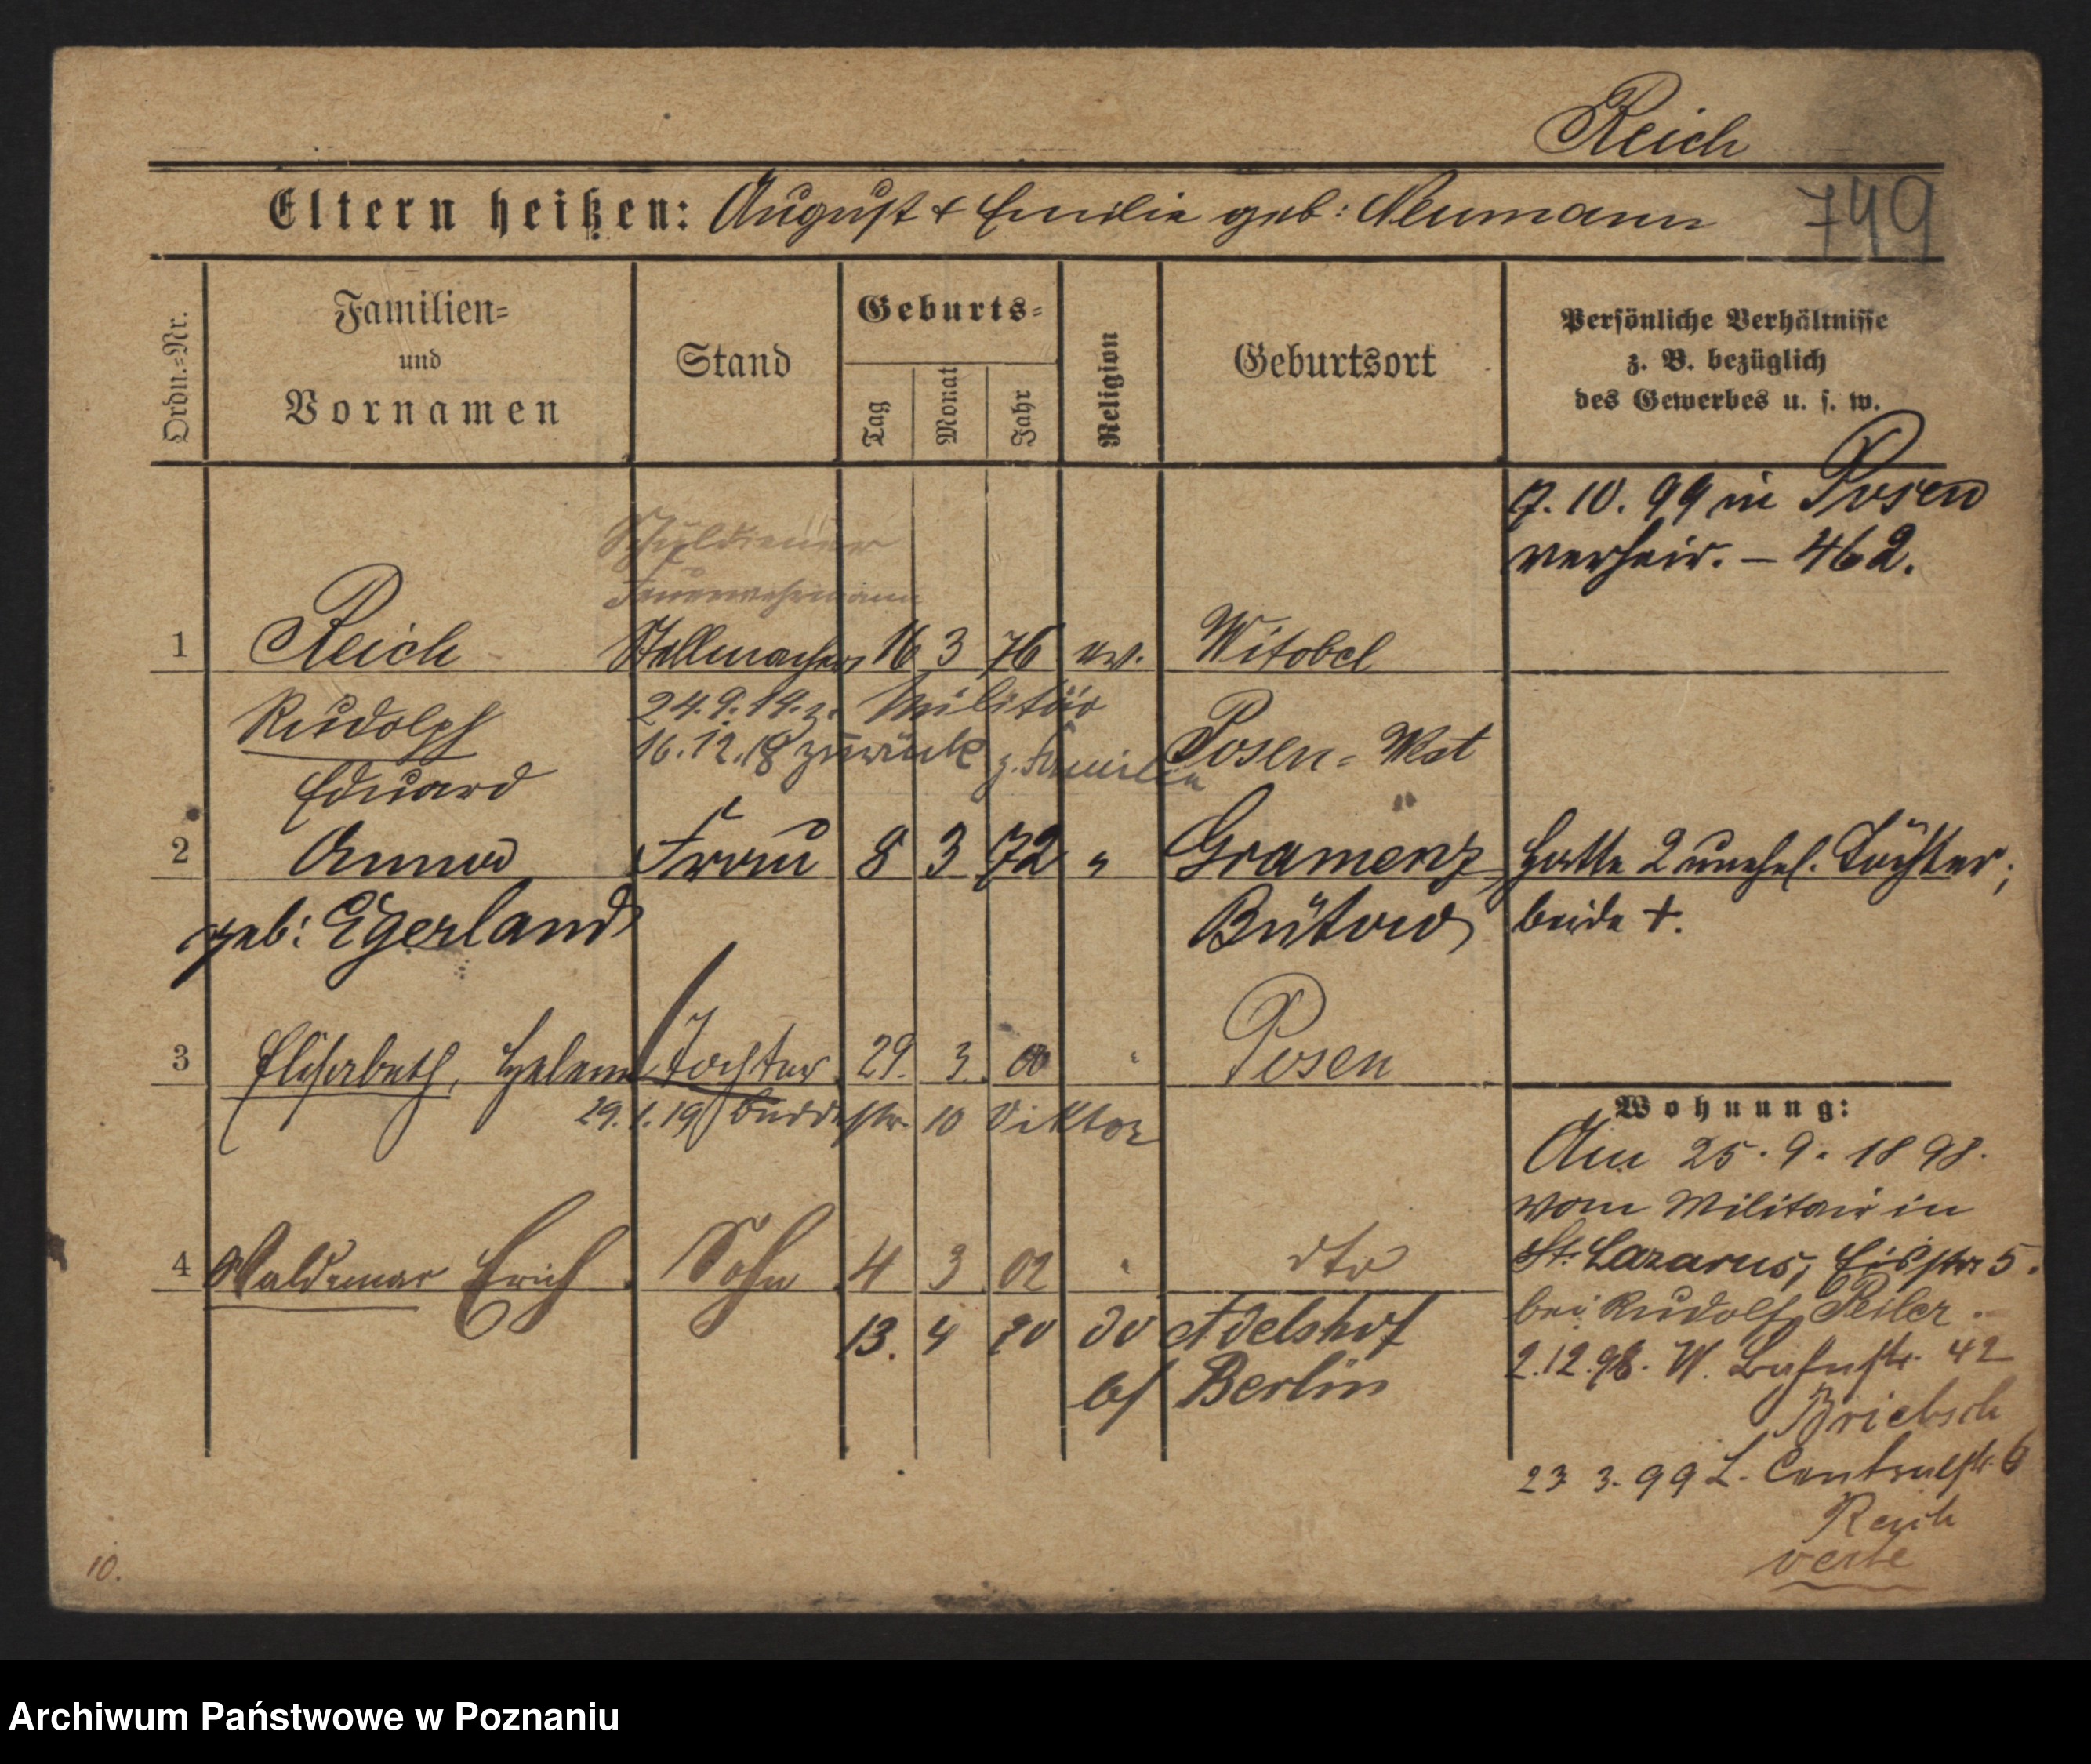 Reich
Eltern heißen: August & Emilie geb: Neumann 749
Ordn.=Nr.
Familien=
und
Vornamen
Stand
Geburts=
Tag
Monat
Jahr
Religion
Geburtsort
Persönliche Verhältnisse
z. B. bezüglich
des Gewerbes u. s. w.
7. 10. 99 in Posen
verheir. – 462.
Schuldiener
Feuerwehrmann
1 Reich Stellmacher 16 3 76 ev. Witobel
Rudolph 24. 9. 14. z. Militär Posen=West
16. 12. 18 zurück z. Familie
Eduard
2 Anna Frau 8 3 72 " Gramenz Hatte 2 unehel. Töchter;
geb: Egerland Bütow beide †.
3 Elisabeth, Helene Tochter 29. 3. 00 " Posen
29. 1. 19 Buddestr. 10 Viktor
Wohnung:
Am 25. 9. 1898.
vom Militair in
St. Lazarus, Eisstr 5.
bei Rudolf Peiler.
4 Waldemar Erich Sohn 4 3 02 " dto
13. 4 20 do Adelshof
b/ Berlin
2. 12. 98. W. Bahnstr. 42
Briebsch
23 3. 99 L. Centralstr. 6
Reich
verte
10.
Archiwum Państwowe w Poznaniu